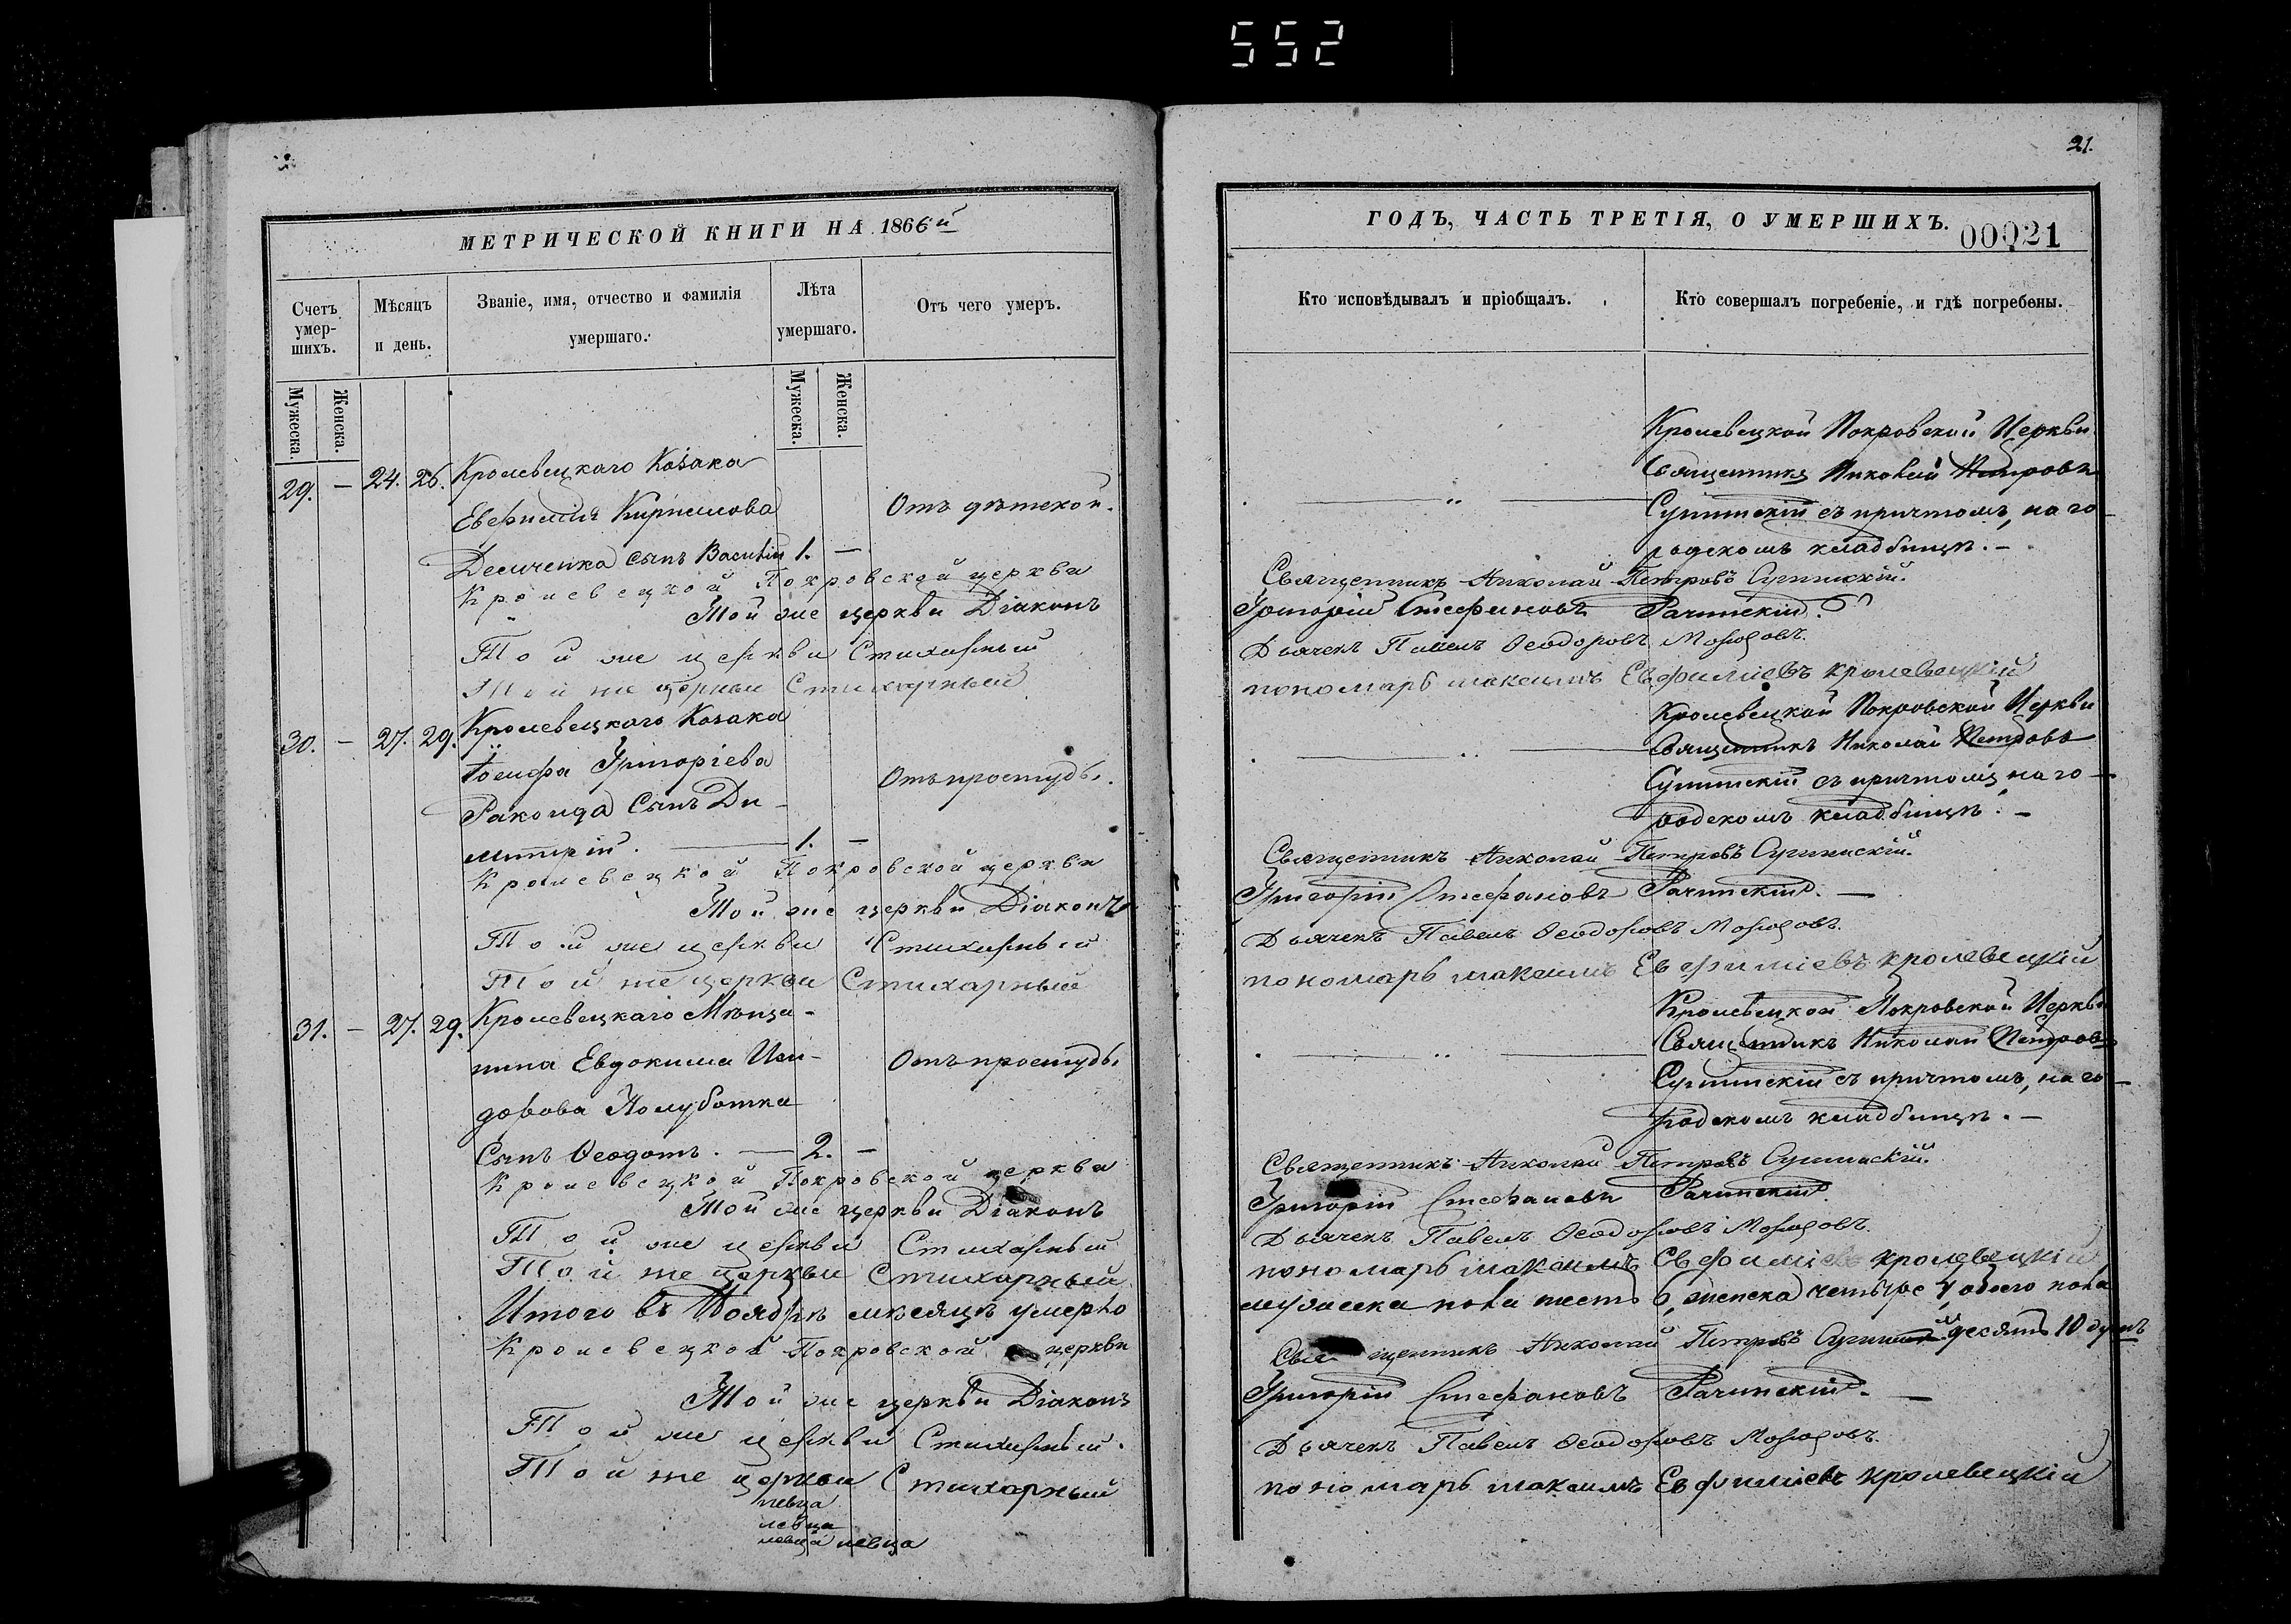 552
МЕТРИЧЕСКОЙ КНИГИ НА 1866й
Счетъ умер-шихъ.
Мѣсяцъ и день.
Званіе, имя, отчество и фамилія умершаго.
Лѣта умершаго.
Отъ чего умеръ.
Мужеска.
Женска.
Мужеска.
Женска.
29. — 24. 26. Кролевецкаго Козака
Евфимія Кириллова
Отъ дѣтской.
сынъ Василій 1. —
Кролевецкой Покровской церкви
Той же церкви Діаконъ
Той же церкви Стихарный
Той же церкви Стихарный
30. — 27. 29. Кролевецкаго Козака
Іосифа Григоріева
Отъ простуды.
Ракоида Сынъ Ди-
митрій. — 1. —
Кролевецкой Покровской церкви
Той же церкви Діаконъ
Той же церкви Стихарный
Той же церкви Стихарный
31. — 27. 29. Кролевецкаго Мѣща-
нина Евдокима Иси-
Отъ простуды
дорова Полуботка
Сынъ Ѳеодотъ. — 2. —
Кролевецкой Покровской церкви
Той же церкви Діаконъ
Той же церкви Стихарный
Той же церкви Стихарный
Итого въ Ноябрѣ мѣсяцѣ умерло
Кролевецкой Покровской церкви
Той же церкви Діаконъ
Той же церкви Стихарный.
Той же церкви Стихарный
21.
ГОДЪ, ЧАСТЬ ТРЕТІЯ, О УМЕРШИХЪ.
00021
Кто исповѣдывалъ и пріобщалъ.
Кто совершалъ погребеніе, и гдѣ погребены.
Кролевецкой Покровской Церкви
Священникъ Николай Петровъ
съ причтомъ, на го-
родскомъ кладбищѣ. —
Священникъ Николай Петровъ
Григорій Стефановъ Рачинскій.
Дьячекъ Павелъ Ѳеодоровъ
пономарь максимъ Евфиміевъ кролевецкій
Кролевецкой Покровской Церкви
Священникъ Николай Петровъ
съ причтомъ, на го-
родскомъ кладбищѣ. —
Священникъ Николай Петровъ
Григорій Стефановъ Рачинскій. —
Дьячекъ Павелъ Ѳеодоровъ
пономарь максимъ Евфиміевъ кролевецкій
Кролевецкой Покровской Церкви
Священникъ Николай Петровъ
съ причтомъ, на го-
родскомъ кладбищѣ. —
Священникъ Николай Петровъ
Григорій Стефановъ Рачинскій.
Дьячекъ Павелъ Ѳеодоровъ
пономарь максимъ Евфиміевъ кролевецкій
мужеска пола шесть 6, женска четыре 4, обоего пола
десять 10 душъ
Священникъ Николай Петровъ
Григорій Стефановъ Рачинскій. —
Дьячекъ Павелъ Ѳеодоровъ
пономарь максимъ Евфиміевъ кролевецкій